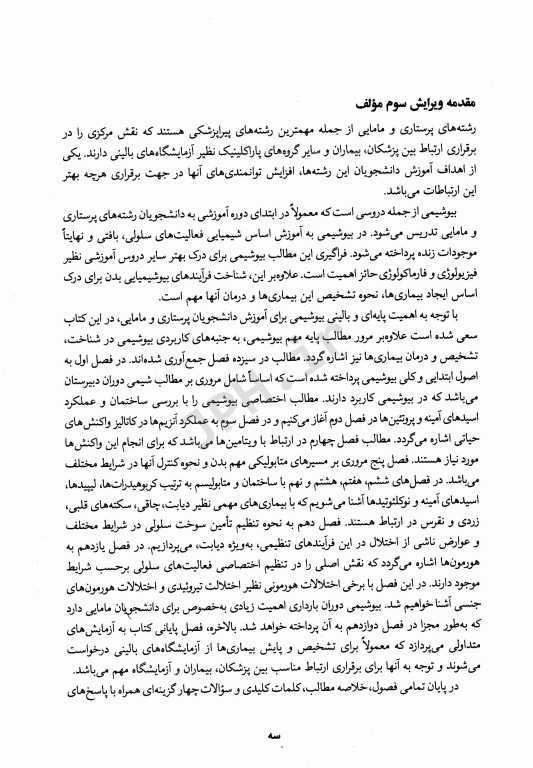 مقدمه ویرایش سوم مؤلف
رشته‌های پرستاری و مامایی از جمله مهمترین رشته‌های پیراپزشکی هستند که نقش مرکزی را در
برقراری ارتباط بین پزشکان، بیماران و سایر گروه‌های پاراکلینیک نظیر آزمایشگاه‌های بالینی دارند. یکی
از اهداف آموزش دانشجویان این رشته‌ها، افزایش توانمندی‌های آنها در جهت برقراری هرچه بهتر
این ارتباطات می‌باشد.
بیوشیمی از جمله دروسی است که معمولاً در ابتدای دوره آموزشی به دانشجویان رشته‌های پرستاری
و مامایی تدریس می‌شود. در بیوشیمی به آموزش اساس شیمیایی فعالیت‌های سلولی، بافتی و نهایتاً
موجودات زنده پرداخته می‌شود. فراگیری این مطالب بیوشیمی برای درک بهتر سایر دروس آموزشی نظیر
فیزیولوژی و فارماکولوژی حائز اهمیت است. علاوه‌بر این، شناخت فرآیندهای بیوشیمیایی بدن برای درک
اساس ایجاد بیماری‌ها، نحوه تشخیص این بیماری‌ها و درمان آنها مهم است.
با توجه به اهمیت پایه‌ای و بالینی بیوشیمی برای آموزش دانشجویان پرستاری و مامایی، در این کتاب
سعی شده است علاوه‌بر مرور مطالب پایه مهم بیوشیمی، به جنبه‌های کاربردی بیوشیمی در شناخت،
تشخیص و درمان بیماری‌ها نیز اشاره گردد. مطالب در سیزده فصل جمع‌آوری شده‌اند. در فصل اول به
اصول ابتدایی و کلی بیوشیمی پرداخته شده است که اساساً شامل مروری بر مطالب شیمی دوران دبیرستان
می‌باشد که در بیوشیمی کاربرد دارند. مطالب اختصاصی بیوشیمی را با بررسی ساختمان و عملکرد
اسیدهای آمینه و پروتئین‌ها در فصل دوم آغاز می‌کنیم و در فصل سوم به عملکرد آنزیم‌ها در کاتالیز واکنش‌های
حیاتی اشاره می‌گردد. مطالب فصل چهارم در ارتباط با ویتامین‌ها می‌باشد که برای انجام این واکنش‌ها
مورد نیاز هستند. فصل پنج مروری بر مسیرهای متابولیکی مهم بدن و نحوه کنترل آنها در شرایط مختلف
می‌باشد. در فصل‌های ششم، هفتم، هشتم و نهم با ساختمان و متابولیسم به ترتیب کربوهیدرات‌ها، لیپیدها،
اسیدهای آمینه و نوکلئوتیدها آشنا می‌شویم که با بیماری‌های مهمی نظیر دیابت، چاقی، سکته‌های قلبی،
زردی و نقرس در ارتباط هستند. فصل دهم به نحوه تنظیم تأمین سوخت سلولی در شرایط مختلف
و عوارض ناشی از اختلال در این فرآیندهای تنظیمی، به‌ویژه دیابت، می‌پردازیم. در فصل یازدهم به
هورمون‌ها اشاره می‌گردد که نقش اصلی را در تنظیم اختصاصی فعالیت‌های سلولی برحسب شرایط
موجود دارند. در این فصل با برخی اختلالات هورمونی نظیر اختلالت تیروئیدی و اختلالات هورمون‌های
جنسی آشنا خواهیم شد. بیوشیمی دوران بارداری اهمیت زیادی به‌خصوص برای دانشجویان مامایی دارد
که به‌طور مجزا در فصل دوازدهم به آن پرداخته خواهد شد. بالاخره، فصل پایانی کتاب به آزمایش‌های
متداولی می‌پردازد که معمولاً برای تشخیص و پایش بیماری‌ها از آزمایشگاه‌های بالینی درخواست
می‌شوند و توجه به آنها برای برقراری ارتباط مناسب بین پزشکان، بیماران و آزمایشگاه مهم می‌باشد.
در پایان تمامی فصول، خلاصه مطالب، کلمات کلیدی و سؤالات چهار گزینه‌ای همراه با پاسخ‌های
سه